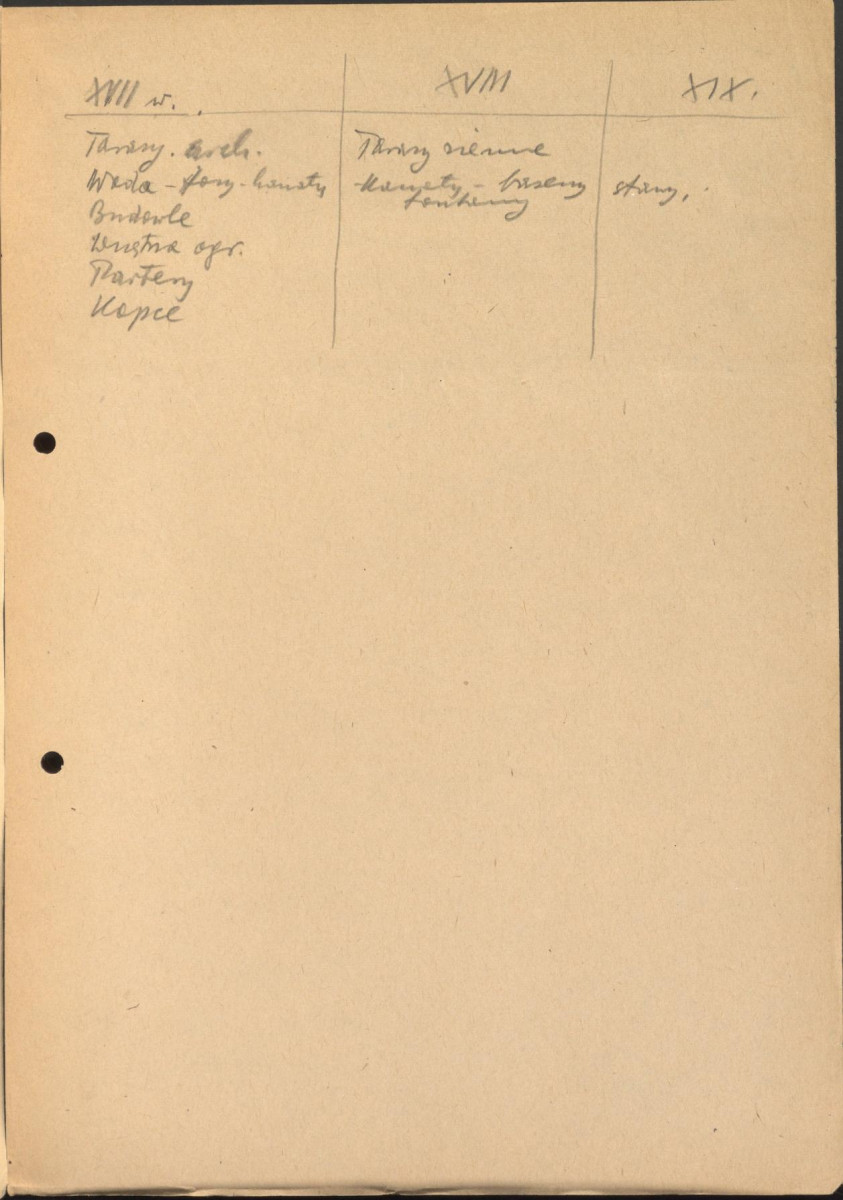 XVII w.
XVIII
XIX.
Tarasy. arch.
Tarasy ziemne
Woda - fosy - kanały
Kanały - baseny
fontanny
stawy,
Budowle
Wnętrza ogr.
Partery
Kopce